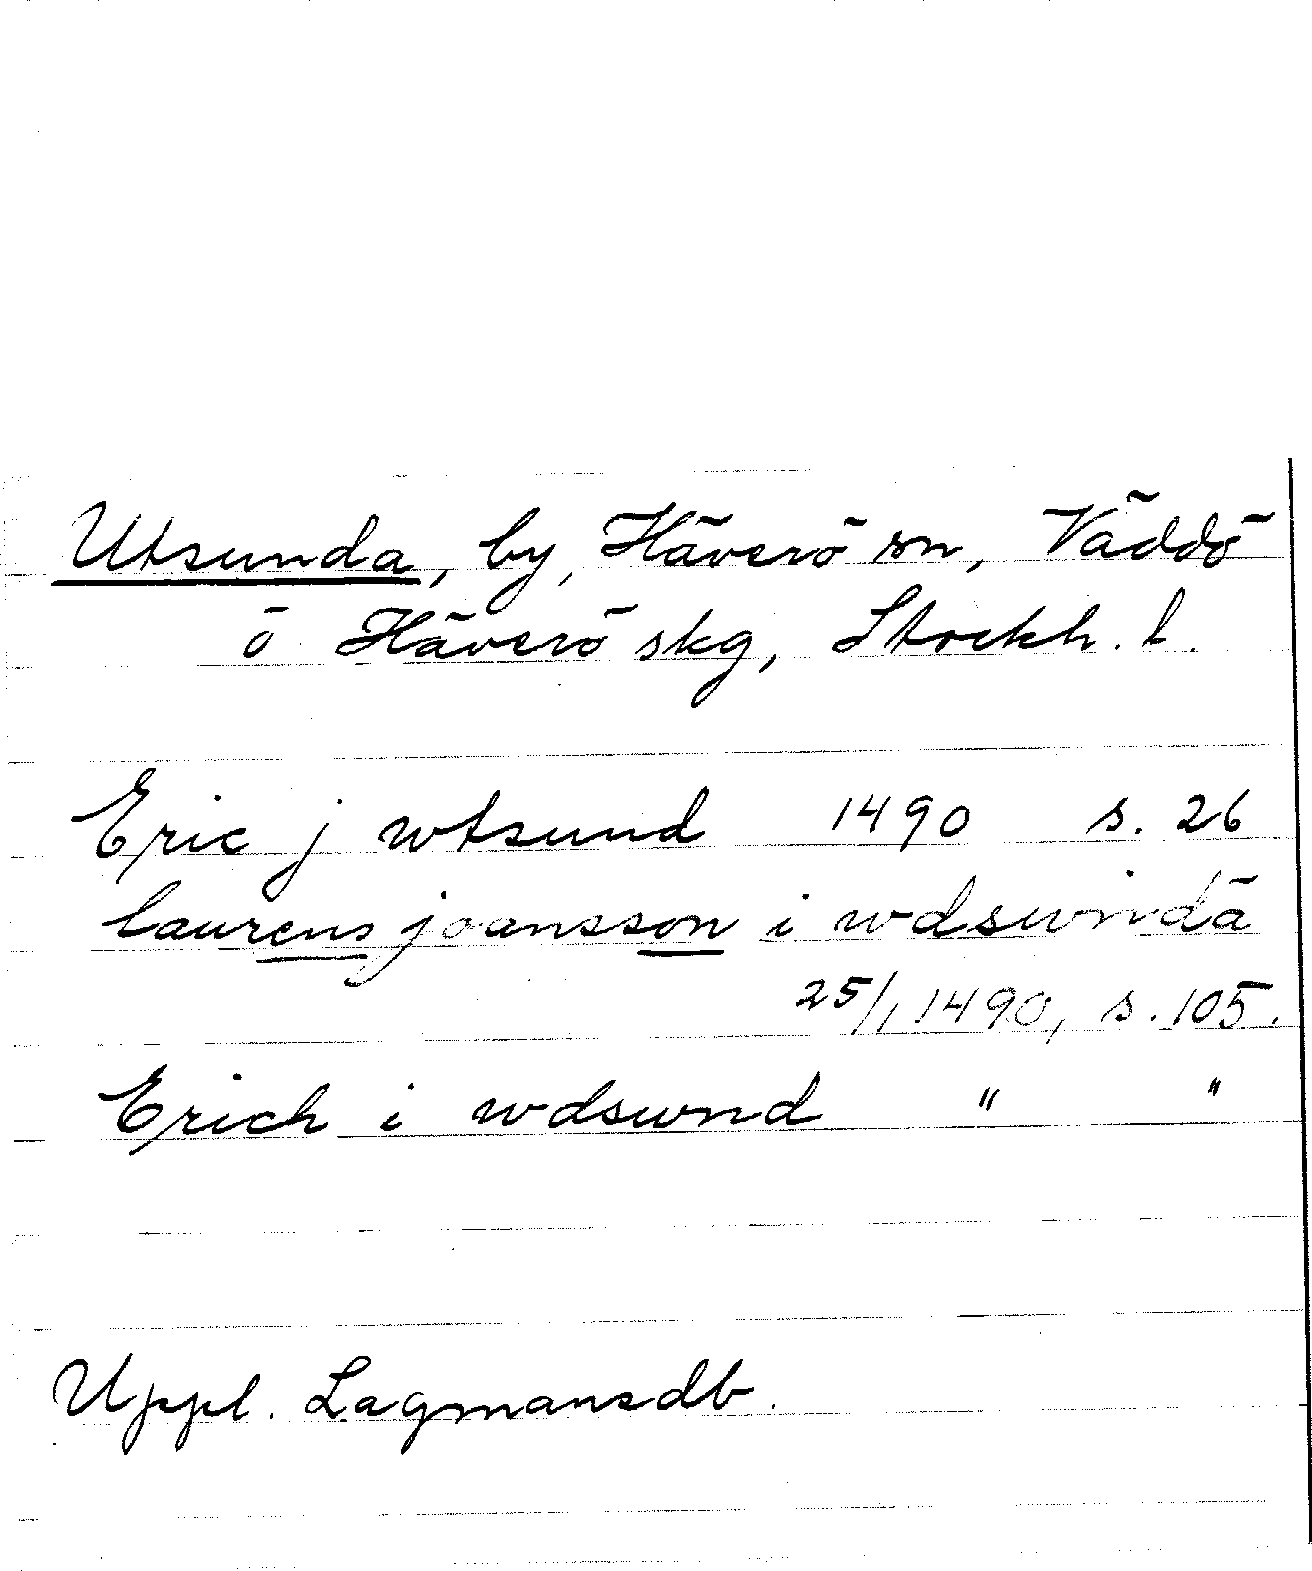 Utsunda, by, Häverö sn, Väddö
o Häverö skg, Stockh. l.
Eric j wtsund 1490 s. 26
laurens joansson i wdswndā
25/1 1490, s. 105.
Erich i wdswnd " "
Uppl. Lagmansdb.